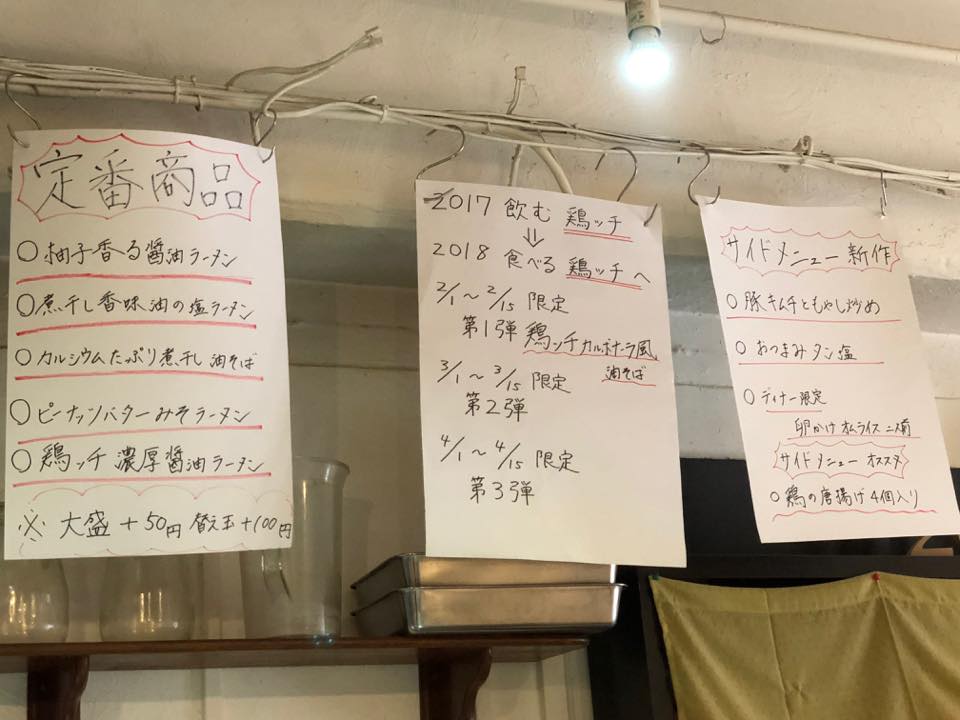 定番商品
○柚子香る醤油ラーメン
○煮干し香味油の塩ラーメン
○カルシウムたっぷり煮干し油そば
○ピーナッツバターみそラーメン
○鶏ッチ濃厚醤油ラーメン
※大盛+50円 替え玉+100円
2017 飲む 鶏ッチ
⇓
2018 食べる 鶏ッチへ
2/1~2/15 限定
第1弾 鶏ッチカルボナーラ風
油そば
3/1~3/15 限定
第2弾
4/1~4/15 限定
第3弾
サイドメニュー新作
○豚キムチともやし炒め
○おつまみタン塩
○ディナー限定
卵かけオムライス二人前
サイドメニューオススメ
○鶏の唐揚げ4個入り